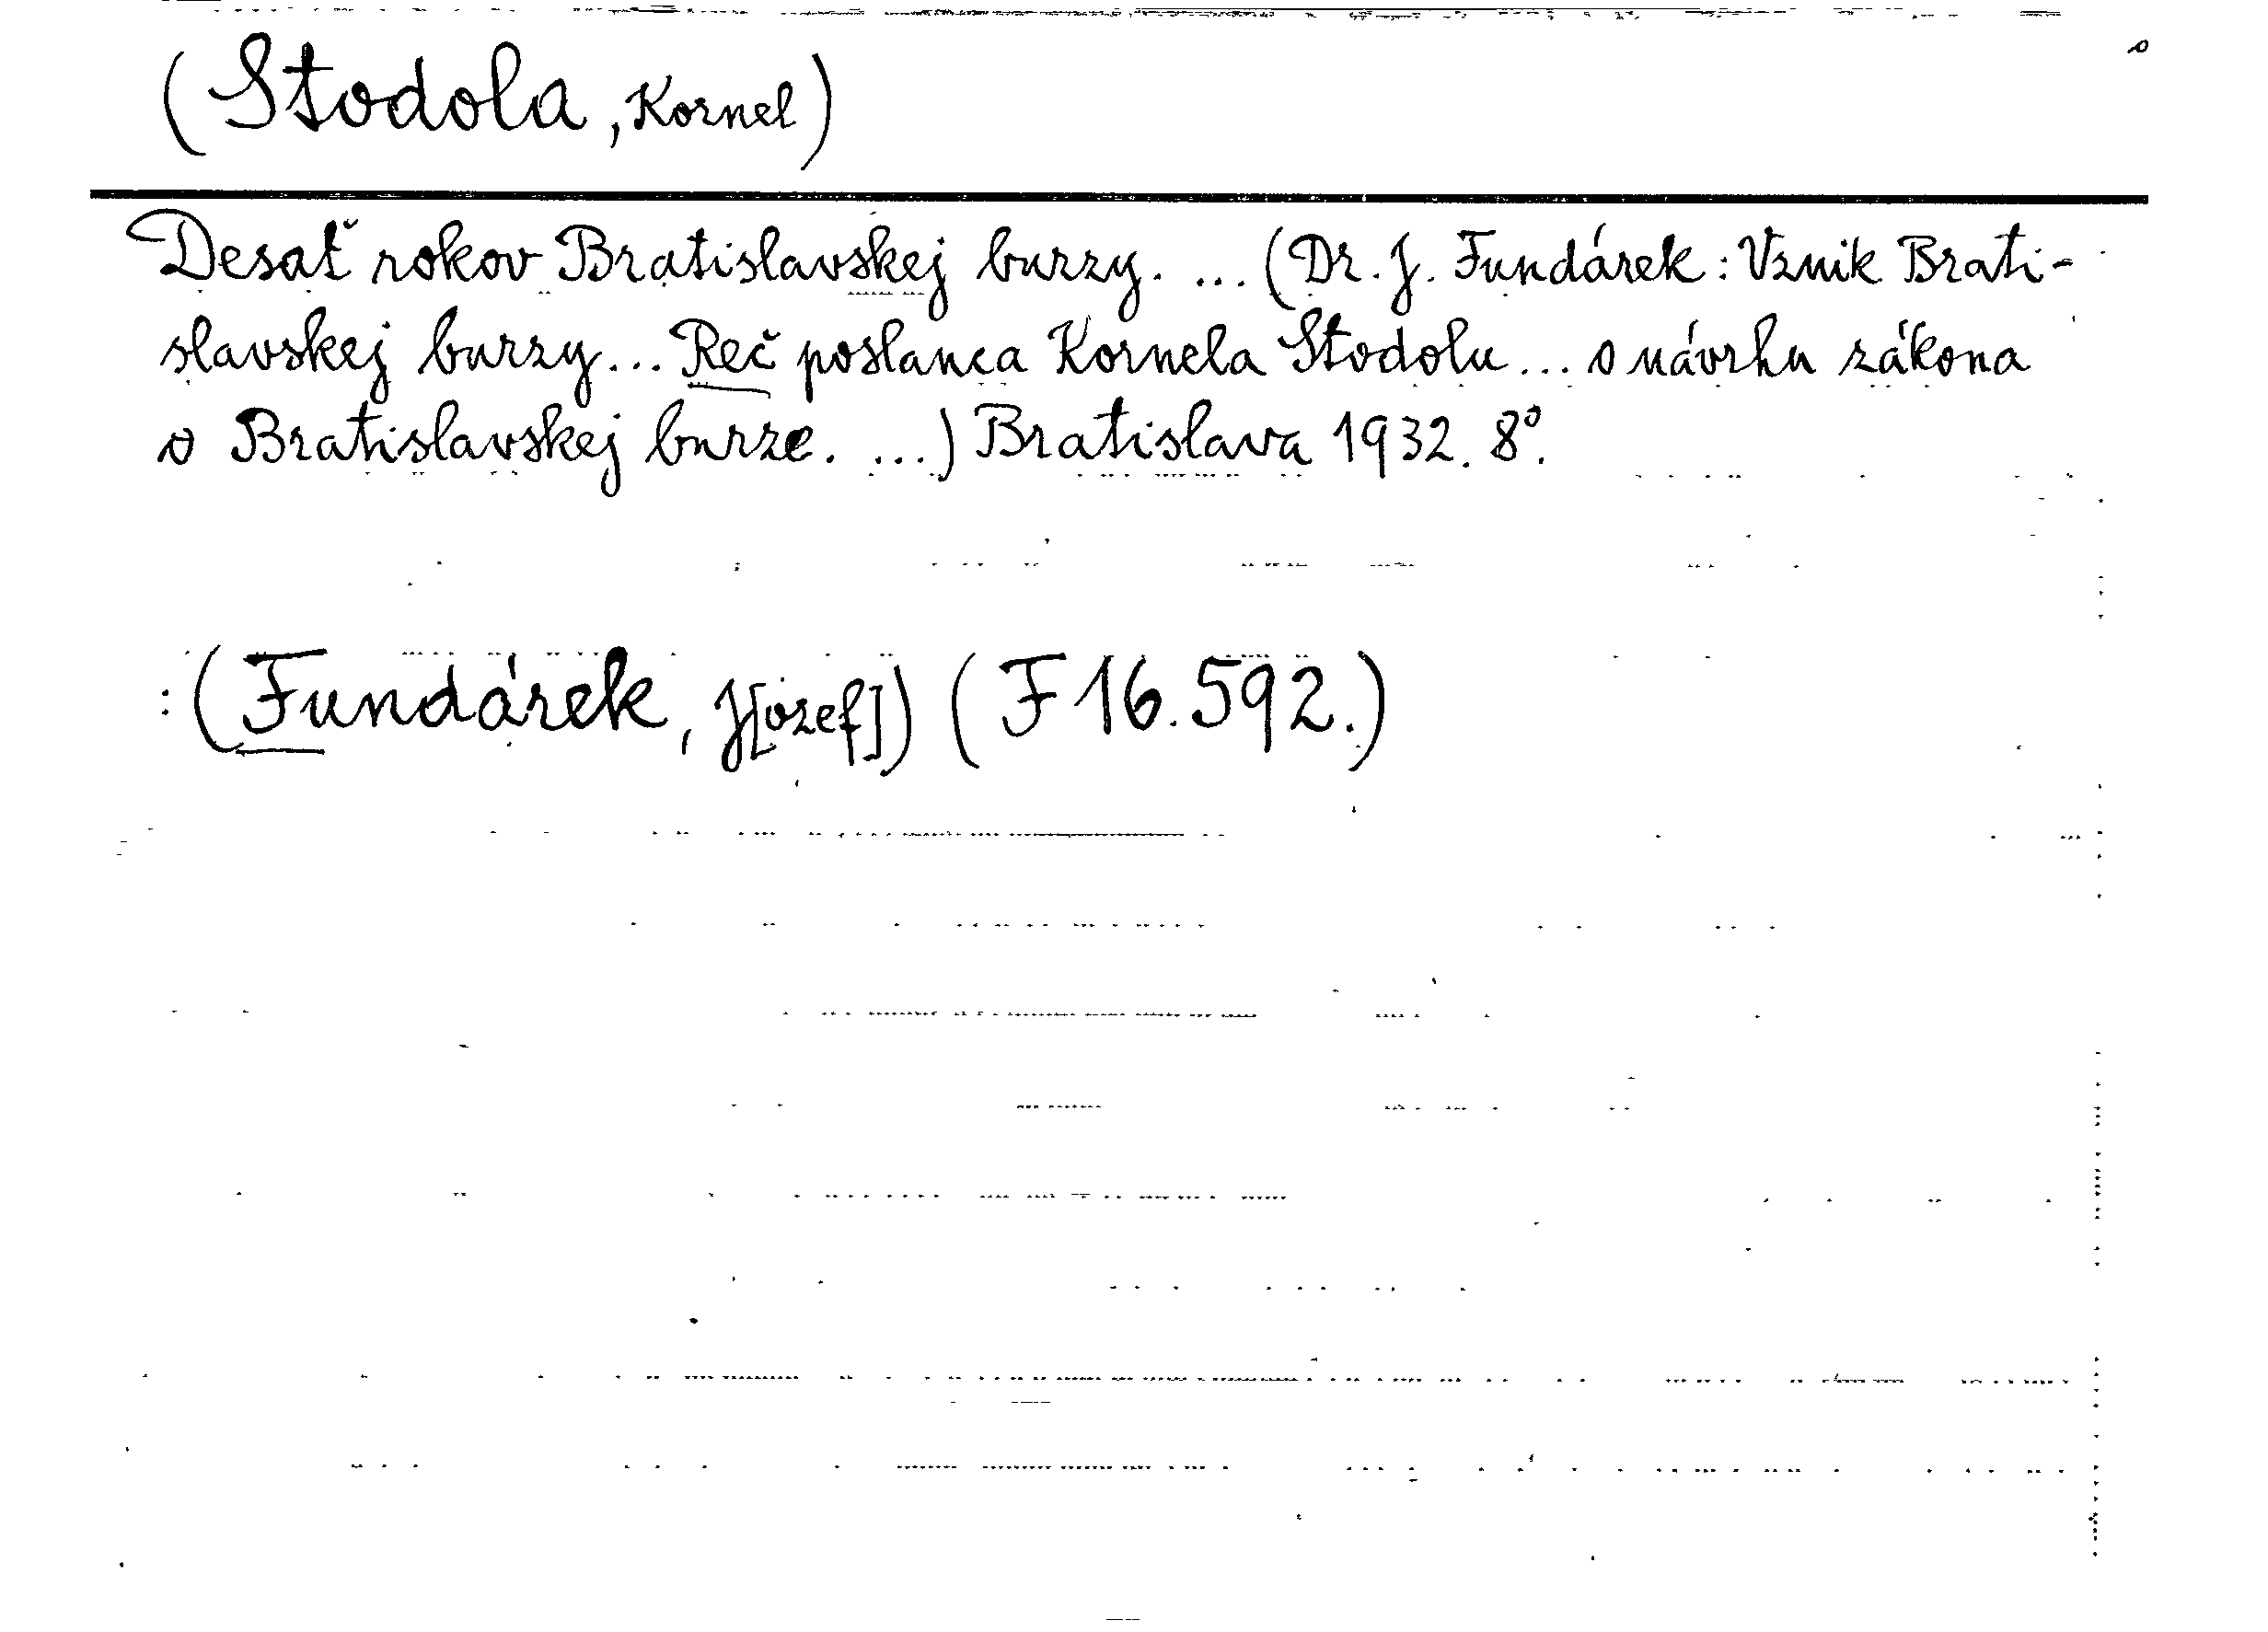 (Stodola, Kornel)
Desať rokov Bratislavskej burzy. ... (Dr. J. Fundárek: Vznik Brati-
slavskej burzy... Reč poslanca Kornela Stodolu... o návrhu zákona
o Bratislavskej burze. ...) Bratislava 1932. 8°.
:(Fundárek, J[ozef]) (F 16.592.)